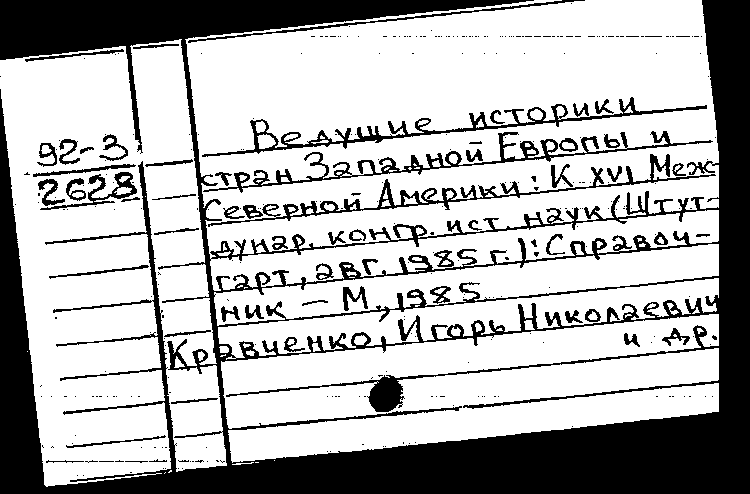 92-3
2628
Ведущие историки
стран Западной Европы и
Северной Америки: К XVI Меж-
дунар. конгр. ист. наук (Штут-
гарт, авг. 1985 г.): Справоч-
ник – М., 1985
Кравченко, Игорь Николаевич
и др.